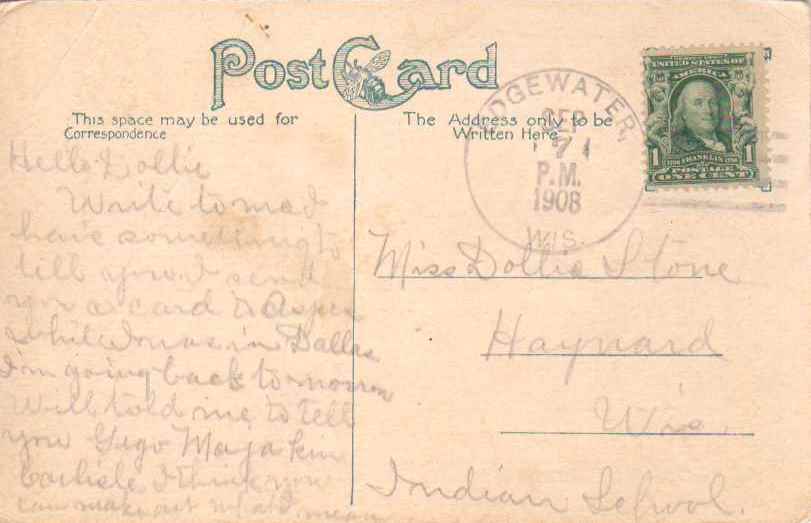 Post Card
This space may be used for
Correspondence
The Address only to be
Written Here
EDGEWATER,
SEP
7
P.M.
1908
WIS.
UNITED STATES OF
AMERICA
FRANKLIN
POSTAGE
1 ONE CENT 1
Hello Dollie
Write to me I
have something to
tell you I send
you a card to
while I was in Dallas
I'm going back to morrow
Will told me to tell
you
Carlisle I think you
can make out what I mean
Miss Dollie Stone
Hayward
Wis.
Indian School.